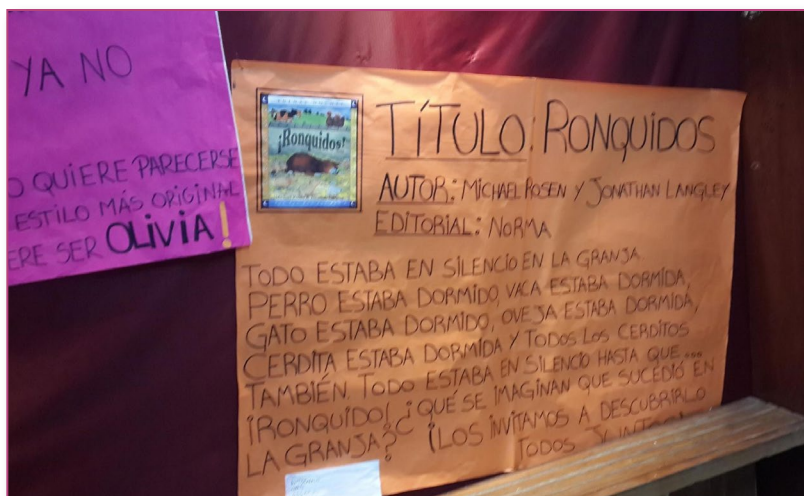 YA NO
QUIERE PARECERSE
ESTILO MÁS ORIGINAL
ERE SER OLIVIA!
¡Ronquidos!
TÍTULO: RONQUIDOS
AUTOR: MICHAEL ROSEN Y JONATHAN LANGLEY
EDITORIAL: NORMA
TODO ESTABA EN SILENCIO EN LA GRANJA
PERRO ESTABA DORMIDO, VACA ESTABA DORMIDA,
GATO ESTABA DORMIDO, OVEJA ESTABA DORMIDA,
CERDITA ESTABA DORMIDA Y TODOS LOS CERDITOS
TAMBIÉN. TODO ESTABA EN SILENCIO HASTA QUE...
¡RONQUIDO! ¿QUÉ SE IMAGINAN QUE SUCEDIÓ EN
LA GRANJA? ¡LOS INVITAMOS A DESCUBRIRLO
TODOS JUNTOS!